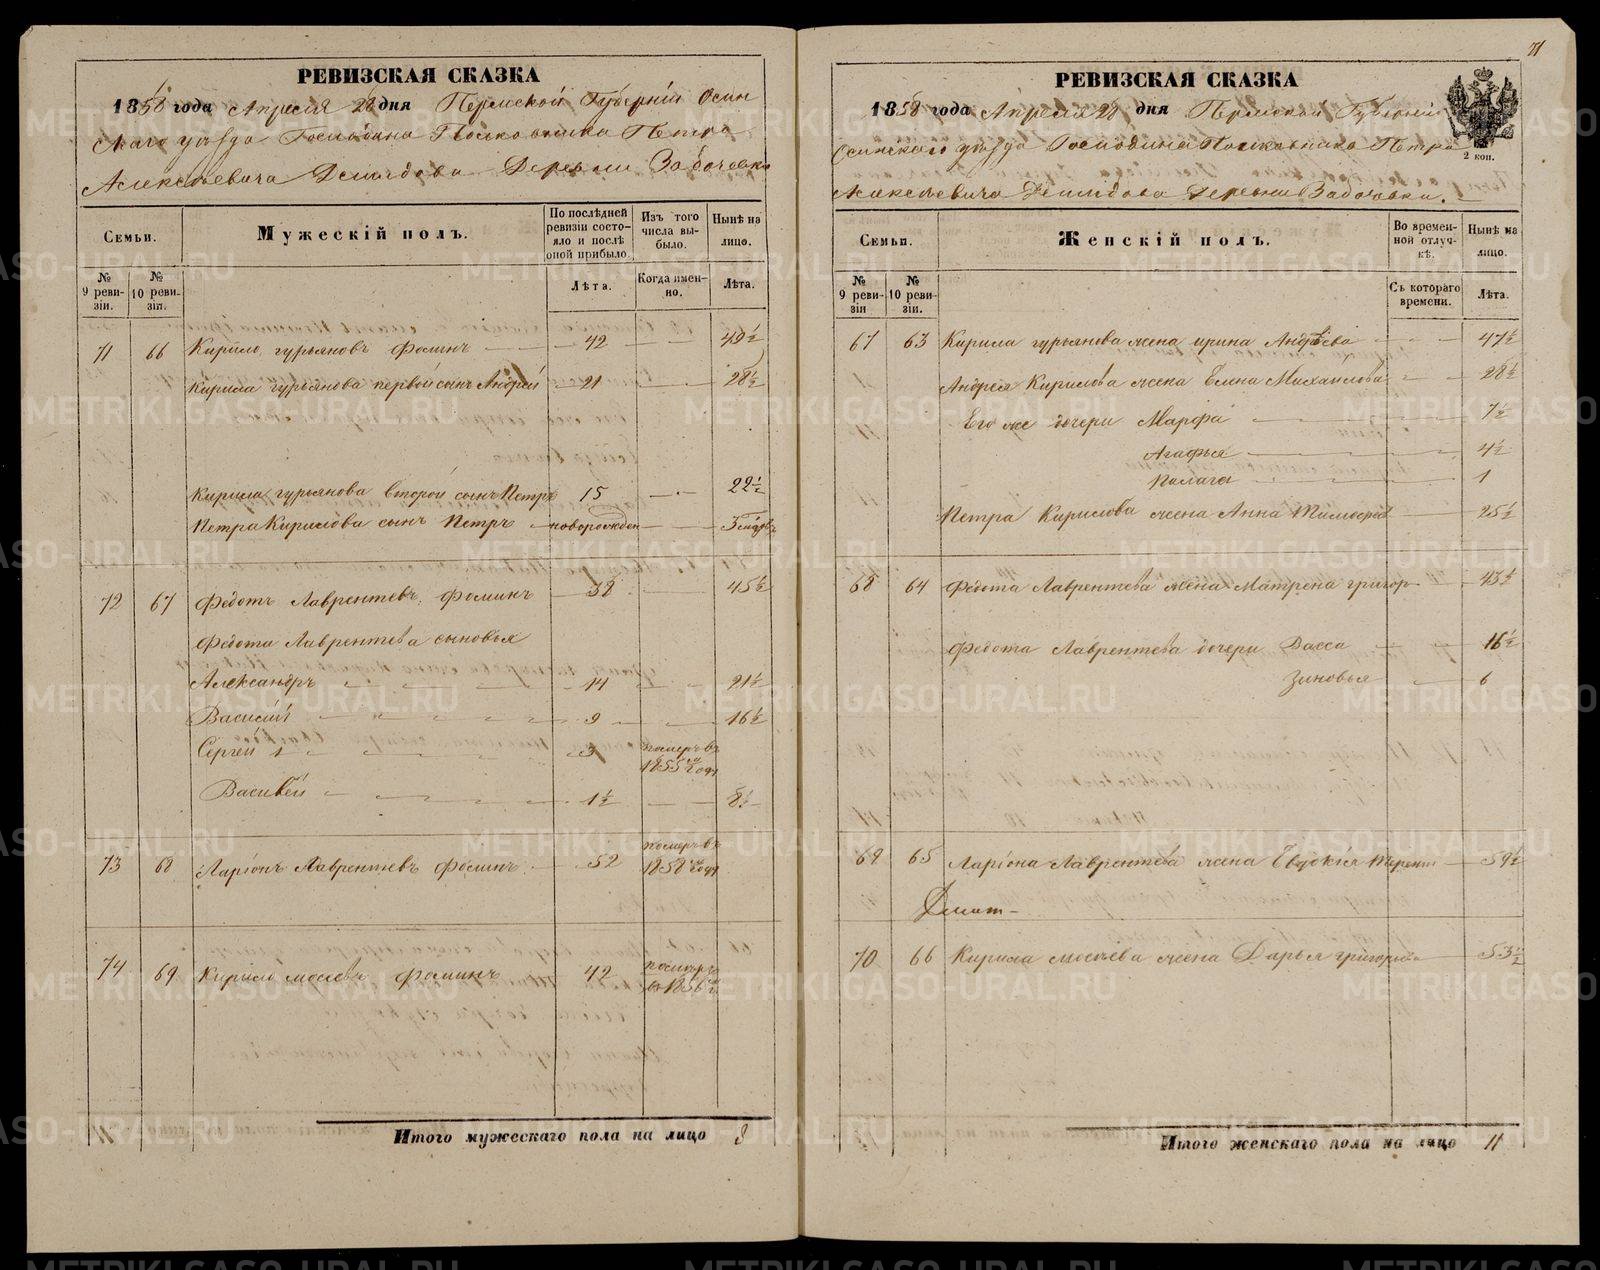 71
РЕВИЗСКАЯ СКАЗКА
1858 года Апреля 28 дня Пермской Губерніи Осин
скаго уѣзда Господина Полковника Петра
Алексѣевича Демидова Деревни
Семьи.
Мужескій полъ.
По послѣдней ревизіи состояло и послѣ оной прибыло.
Изъ того числа выбыло.
Нынѣ на лицо.
№ 9 ревизіи.
№ 10 ревизіи.
Лѣта.
Когда именно.
Лѣта.
71 66 Кирило гурьяновъ Фоминъ 42 49½
Кирила гурьянова первой сынъ Андрей 21 28½
Кирила гурьянова второй сынъ Петръ 15 22½
Петра Кирилова сынъ Петръ новорожден
72 67 Федотъ Лаврентевъ Фоминъ 38 45½
Федота Лаврентева сыновья
Александръ 14 21½
Василій 9 16½
Сергей 3 померъ въ 1855 году
Василей 1½ 8½
73 68 Ларіонъ Лаврентевъ Фоминъ 52 померъ въ 1858 году
74 69 Кирило мосеевъ Фоминъ 42 померъ въ 1856
Итого мужескаго пола на лицо 8
РЕВИЗСКАЯ СКАЗКА
1858 года Апреля 28 дня Пермской Губерніи
Осинскаго уѣзда Господина Полковника Петра
Алексѣевича Демидова Деревни
2 коп.
Семьи.
Женскій полъ.
Во временной отлучкѣ.
Нынѣ на лицо.
№ 9 ревизіи
№ 10 ревизіи.
Съ котораго времени.
Лѣта.
67 63 Кирила гурьянова жена ирина Андрѣева 47½
Андрея Кирилова жена Елена Михаилова 28½
Его же дочери Марфа 7½
Агафья 4½
Палагея 1
Петра Кирилова жена Анна Тимофеев 25½
68 64 Федота Лаврентева жена Матрена григор 43½
Федота Лаврентева дочери Васса 16½
Зиновья 6
69 65 Ларіона Лаврентева жена Евдокія Терент 59½
70 66 Кирила мосеева жена Дарья григорьева 53½
Итого женскаго пола на лицо 11
METRIKI.GASO-URAL.RU